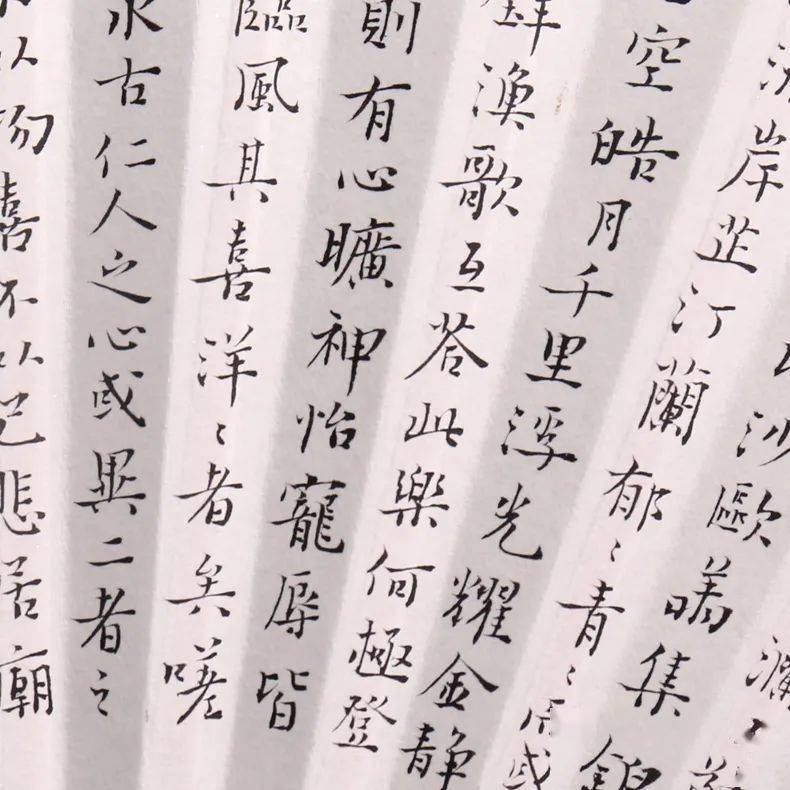 沙鷗翔集錦
泳岸芷汀蘭郁〻青〻而或
空皓月千里浮光耀金静
漁歌互荅此樂何極登
則有心曠神怡寵辱皆
臨風其喜洋〻者矣嗟
求古仁人之心或異二者之
以物喜不以己悲居廟